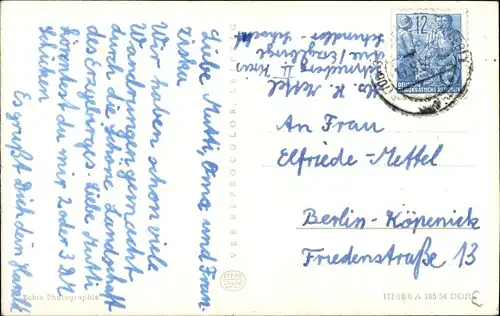 Liebe Mutti, Oma und Fran-
ziska
Wir haben schon viele
Wanderungen gemacht
durch die schöne Landschaft
des Erzgebirgs. Liebe Mutti
könntest du mir 2 oder 3 DM
schicken
Es grüßt Dich dein Harald
H. Mettel
Schneeberg II Kreis
Aue/Erzgebirge
Schindler-Schacht
An Frau
Elfriede-Mettel
Berlin-Köpenick
Friedenstraße 13
12
DEUTSCHE
DEMOKRATISCHE REPUBLIK
VEB REPROCOLOR
Echte Photographie
III/18/6 A 165/54 DDR